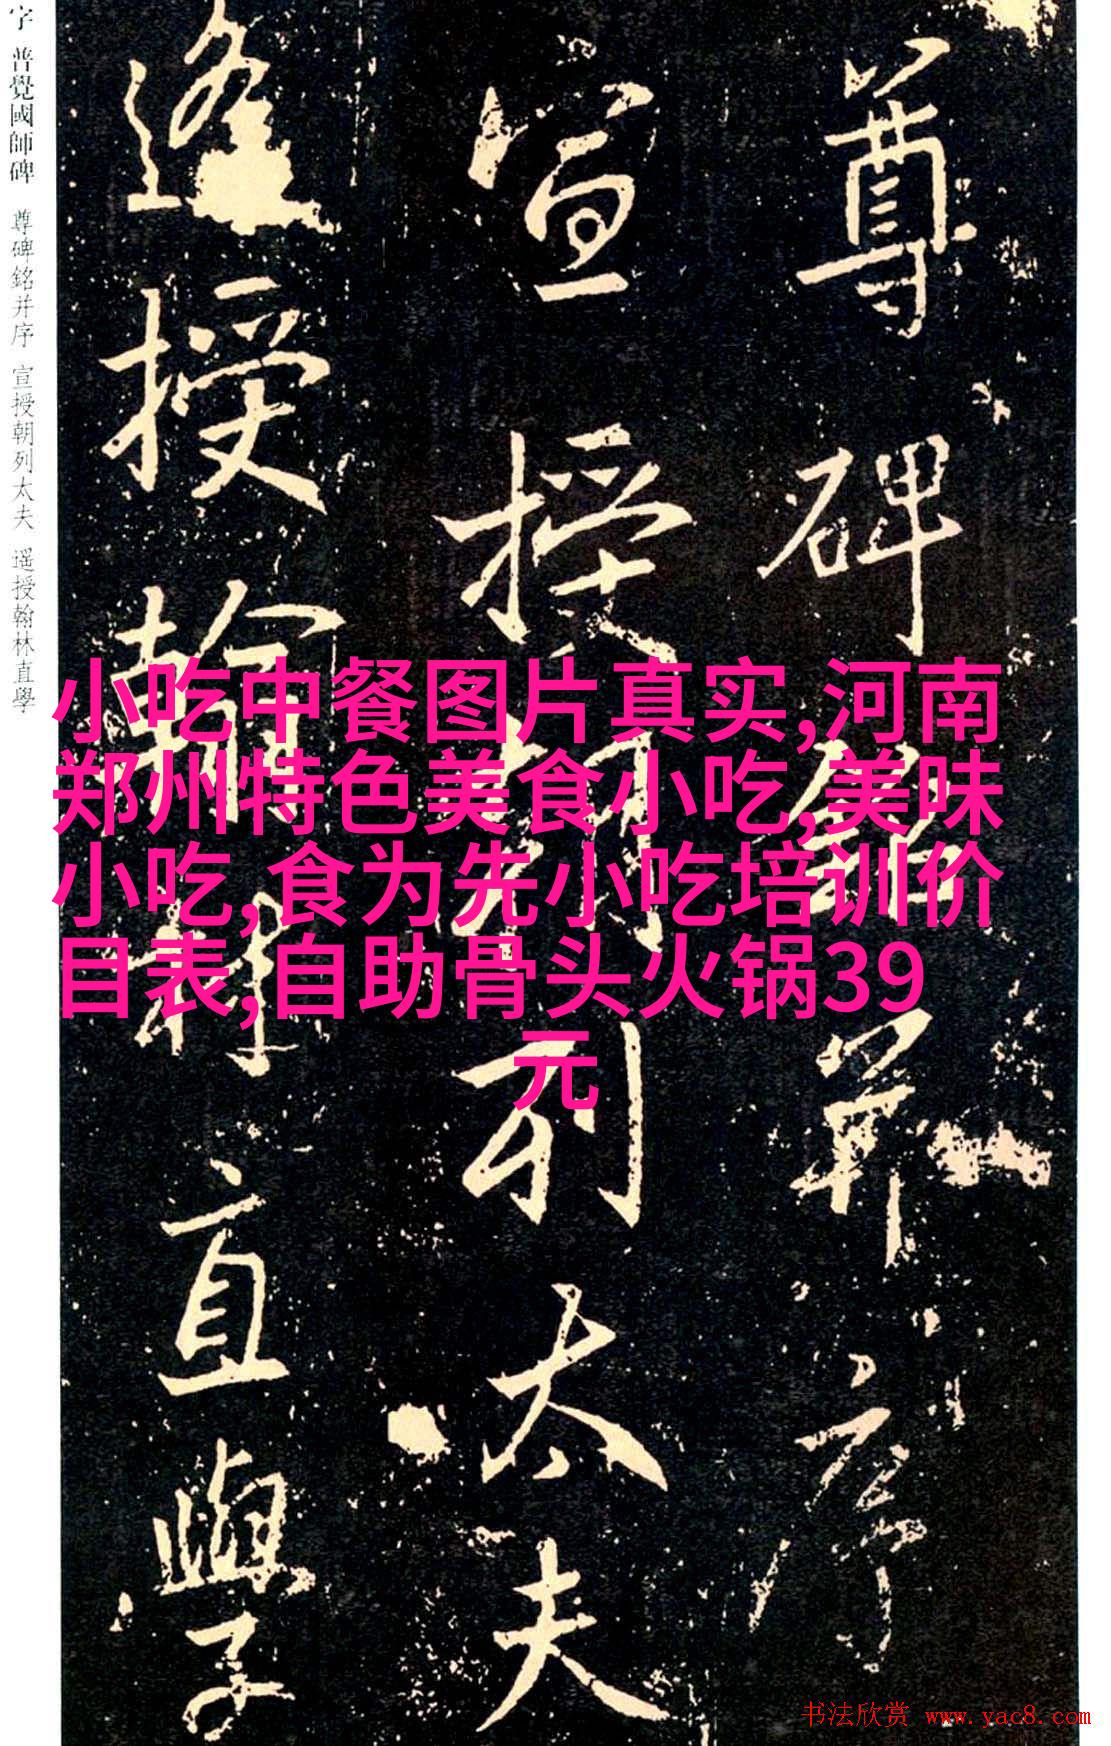 尊碑銘并序
宣授朝列太夫
遥授翰林直學
字 普覺國師碑 尊碑銘并序 宣授朝列太夫 遥授翰林直學
小吃中餐图片真实,河南
郑州特色美食小吃,美味
小吃,食为先小吃培训价
目表,自助骨头火锅39
元
书法欣赏 www.yac8.com